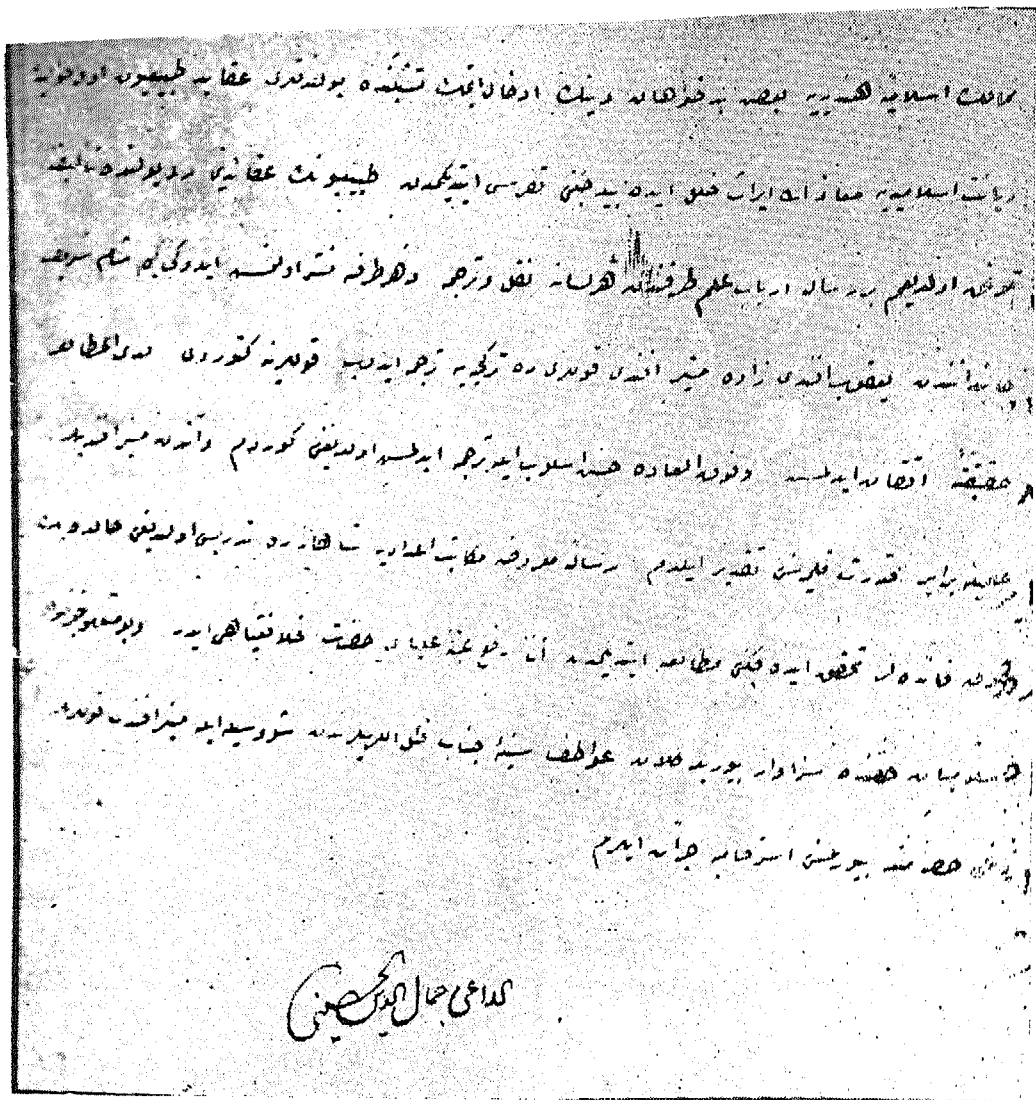 ممالك اسلاميه هنديه يه بعض بدخواهان دينك ادخال ايتمك تشبثنده بولندقلرى عقايد طبيعيون اوروپايه
ديانت اسلاميه يه معاذ الله ايراث خلل ايده بيله جكنى تفرس ايتديكمدن طبيعيونك عقائدينى رد يولنده تأليفنه
موفق اولديغم بر رساله ارباب علم طرفندن هر لسانه نقل وترجمه وهر طرفه نشر اولنمش ايدوكى كبى شام شريف
يعقوب افندى زاده منير افندى قوللرى ده تركجه يه ترجمه ايدوب قوللرينه كتوردى لدى المطالعه
حقيقة اتقان ايدلمش وفوق العاده حسن اسلوب ايله ترجمه ايدلمش اولديغنى كوردم واندن منير افندينك
برابر قدرت قلميه سنى تقدير ايلدم رساله معروضه مكاتب اعداديه شاهانه ده تدريس اولنديغى حالده پك
فائده لر تحقق ايده جكنى مطالعه ايتديكمدن آنى رفع عتبه علياى حضرت خلافتپناهى ايدر
حقنده سزاوار بيوريلان عواطف سنيه جناب ظل اللهيلرندن شو وسيله ايله منير افندى قوللرينك
حصه مند بيورلمسى استرحامنه جرأت ايلرم
الداعى جمال الدين الحسينى